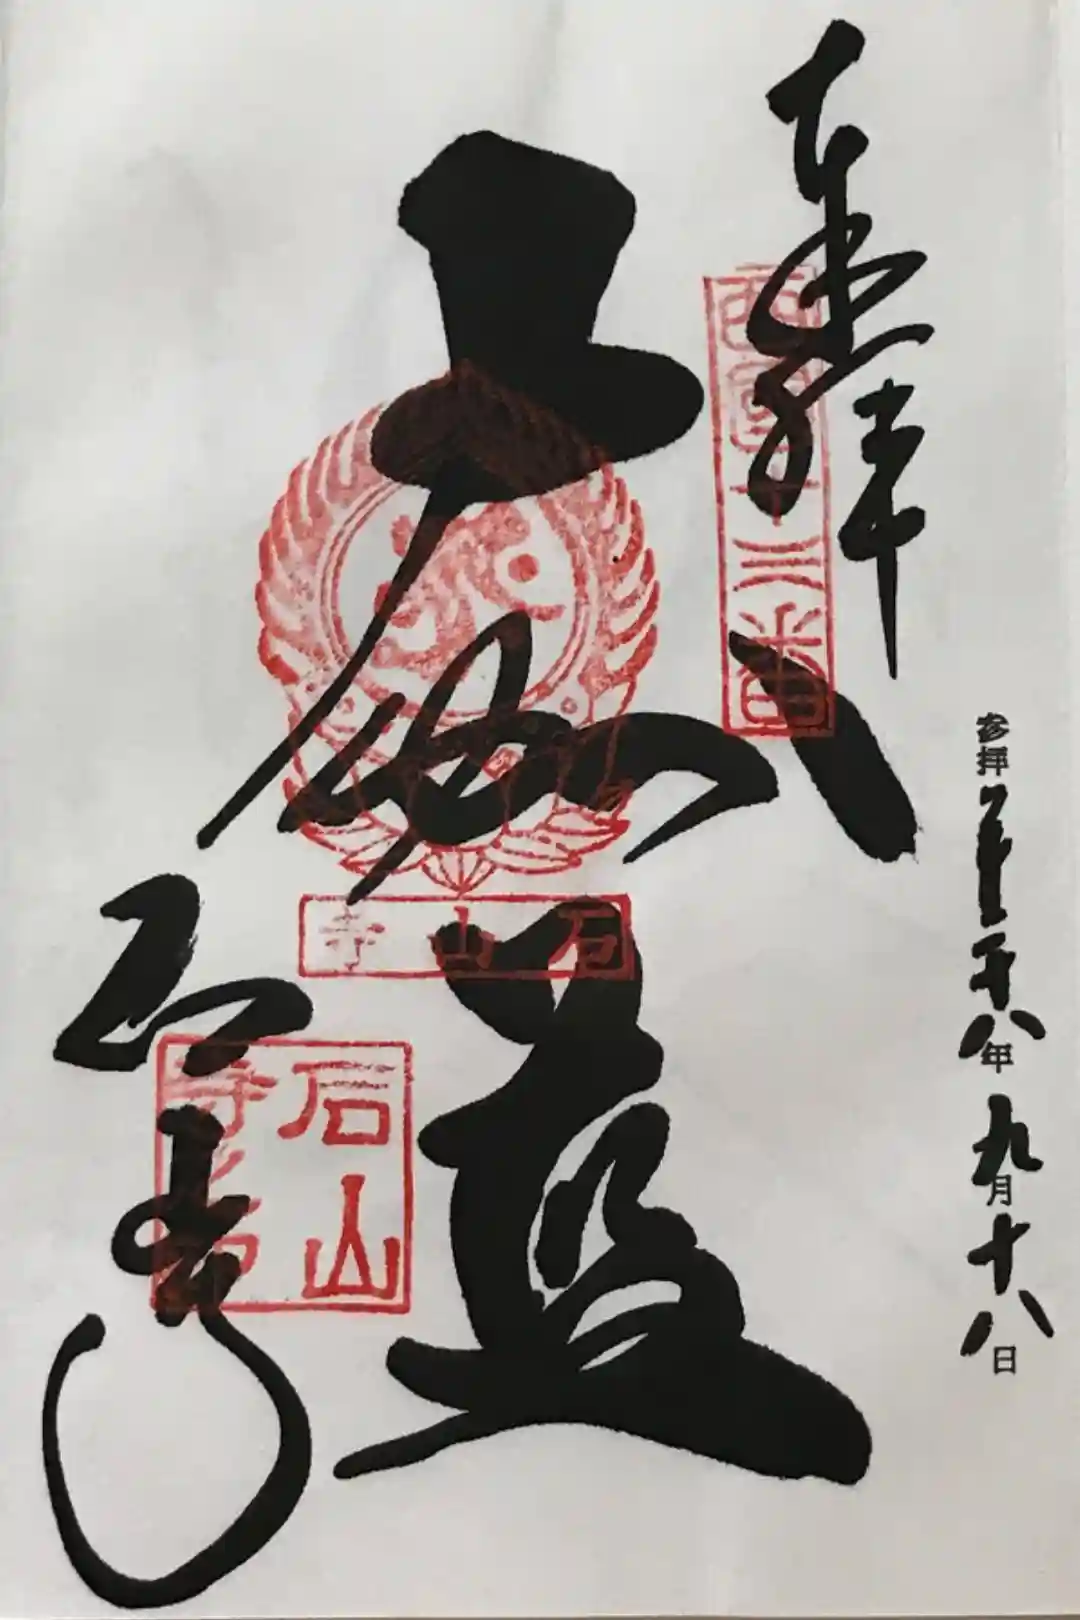 奉拝
西國十三番
大伽藍
石山寺
石山寺
石山
寺
参拝 平成二十八年九月十八日